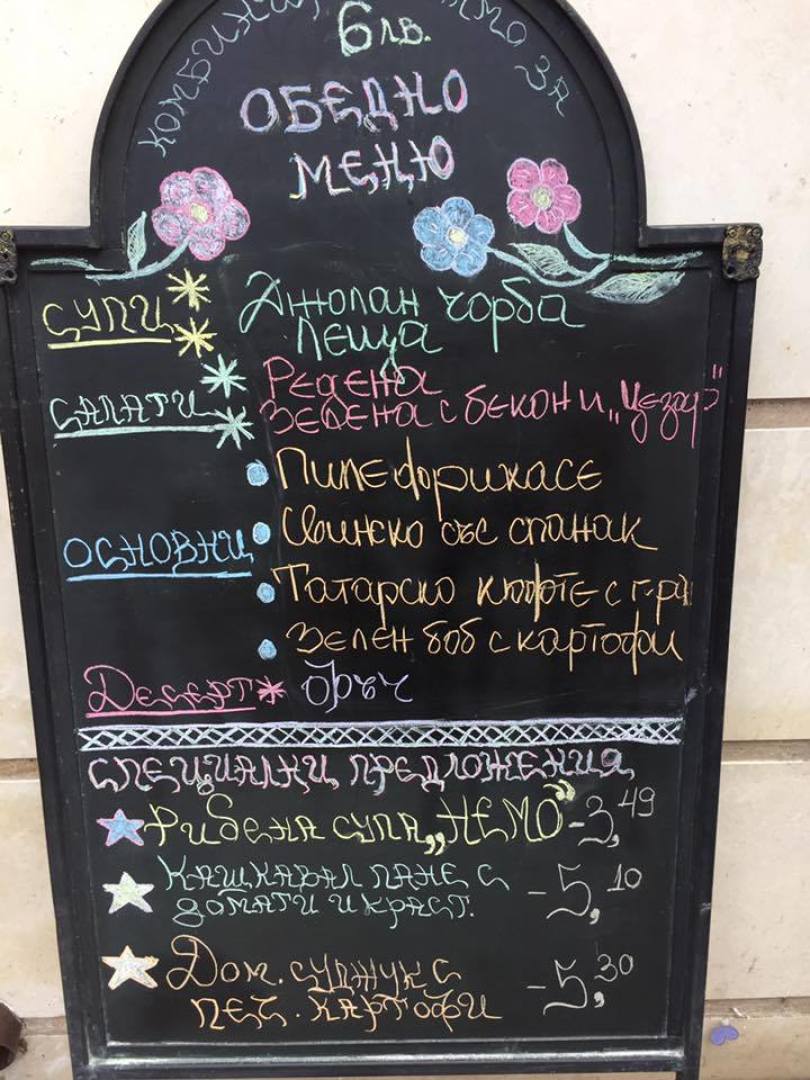 6лв.
ЗА
ОБЕДНО
МЕНЮ
СУПИ Джолан чорба
Леща
САЛАТИ Редена
Зелена с бекон и „Цезар"
Пиле фрикасе
ОСНОВНИ Свинско със спанак
Татарско кюфте с г-ра
Зелен боб с картофи
Десерт Оръч
СПЕЦИАЛНИ ПРЕДЛОЖЕНИЯ
Рибена супа „НЕМО" - 3,49
Кашкавал пане с - 5,10
домати и краст.
Дом. суджук с - 5,30
печ. картофи